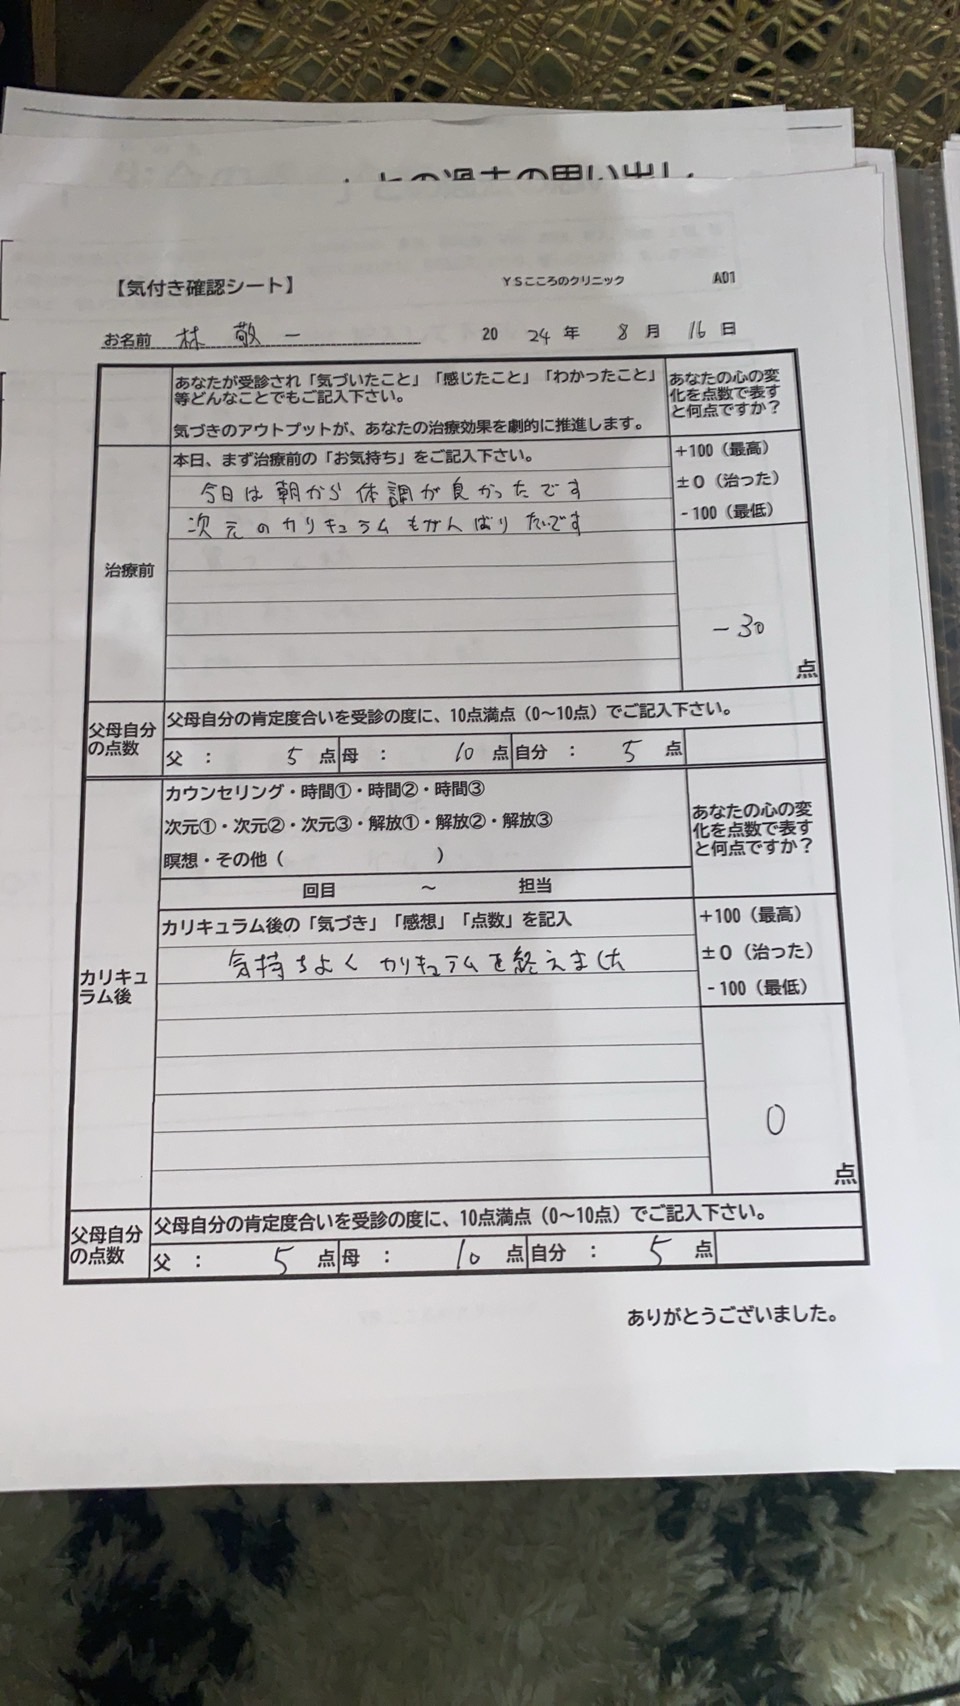 との過去の思い出し
【気付き確認シート】 YSこころのクリニック A01
お名前 林 敬一 2024年 8月 16日
あなたが受診され「気づいたこと」「感じたこと」「わかったこと」
等どんなことでもご記入下さい。
気づきのアウトプットが、あなたの治療効果を劇的に推進します。
あなたの心の変
化を点数で表す
と何点ですか？
治療前
本日、まず治療前の「お気持ち」をご記入下さい。
今日は朝から体調が良かったです
次元のカリキュラムもがんばりたいです
+100（最高）
±0（治った）
-100（最低）
-30
点
父母自分
の点数
父母自分の肯定度合いを受診の度に、10点満点（0～10点）でご記入下さい。
父 ： 5 点 母 ： 10 点 自分 ： 5 点
カリキュ
ラム後
カウンセリング・時間①・時間②・時間③
次元①・次元②・次元③・解放①・解放②・解放③
瞑想・その他（ ）
回目 ～ 担当
あなたの心の変
化を点数で表す
と何点ですか？
カリキュラム後の「気づき」「感想」「点数」を記入
気持ちよくカリキュラムを終えました
+100（最高）
±0（治った）
-100（最低）
0
点
父母自分
の点数
父母自分の肯定度合いを受診の度に、10点満点（0～10点）でご記入下さい。
父 ： 5 点 母 ： 10 点 自分 ： 5 点
ありがとうございました。